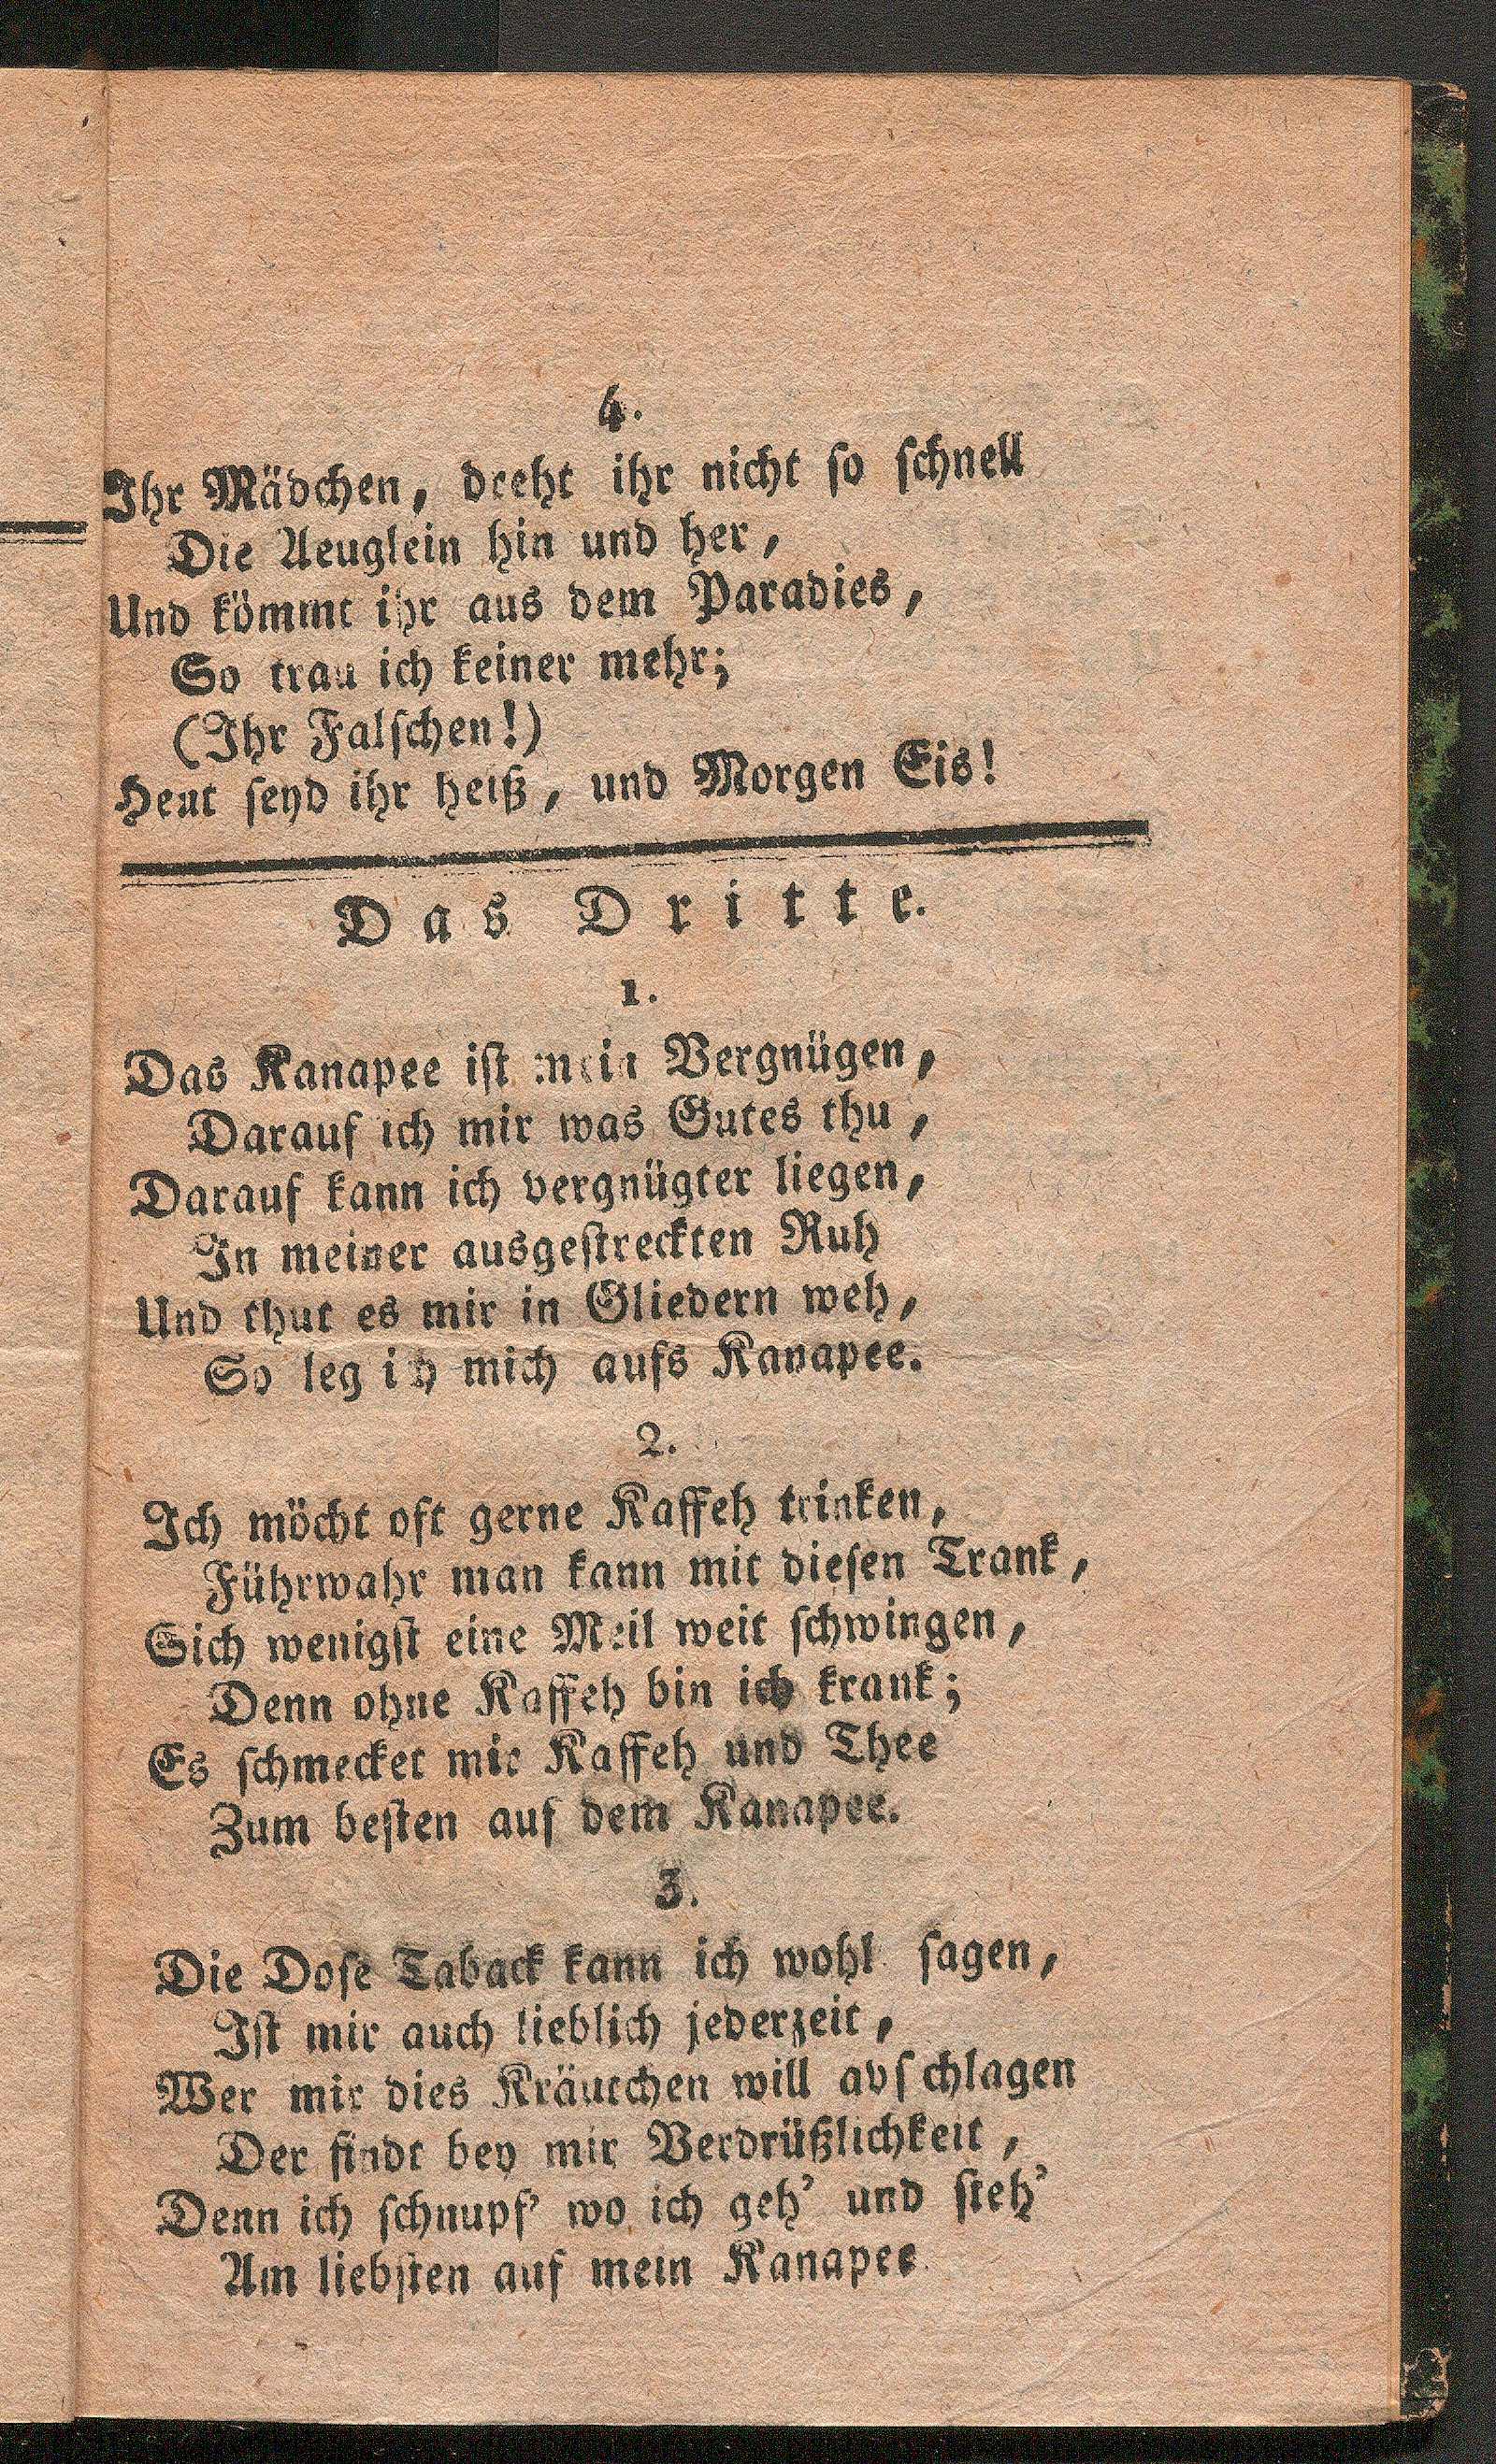 4.
Ihr Mädchen, dreht ihr nicht ſo ſchnell
Die Aeuglein hin und her,
Und kömmt ihr aus dem Paradies,
So trau ich keiner mehr;
(Ihr Falſchen!)
Heut ſeyd ihr heiß, und Morgen Eis!
Das Dritte.
1.
Das Kanapee iſt mein Vergnügen,
Darauf ich mir was Gutes thu,
Darauf kann ich vergnügter liegen,
In meiner ausgeſtreckten Ruh
Und thut es mir in Gliedern weh,
So leg ich mich aufs Kanapee.
2.
Ich möcht oft gerne Kaffeh trinken,
Führwahr man kann mit dieſen Trank,
Sich wenigſt eine Meil weit ſchwingen,
Denn ohne Kaffeh bin ich krank;
Es ſchmecket mir Kaffeh und Thee
Zum beſten auf dem Kanapee.
3.
Die Doſe Taback kann ich wohl ſagen,
Iſt mir auch lieblich jederzeit,
Wer mir dies Kräutchen will abſchlagen
Der findt bey mir Verdrüßlichkeit,
Denn ich ſchnupf' wo ich geh' und ſteh'
Am liebſten auf mein Kanapee